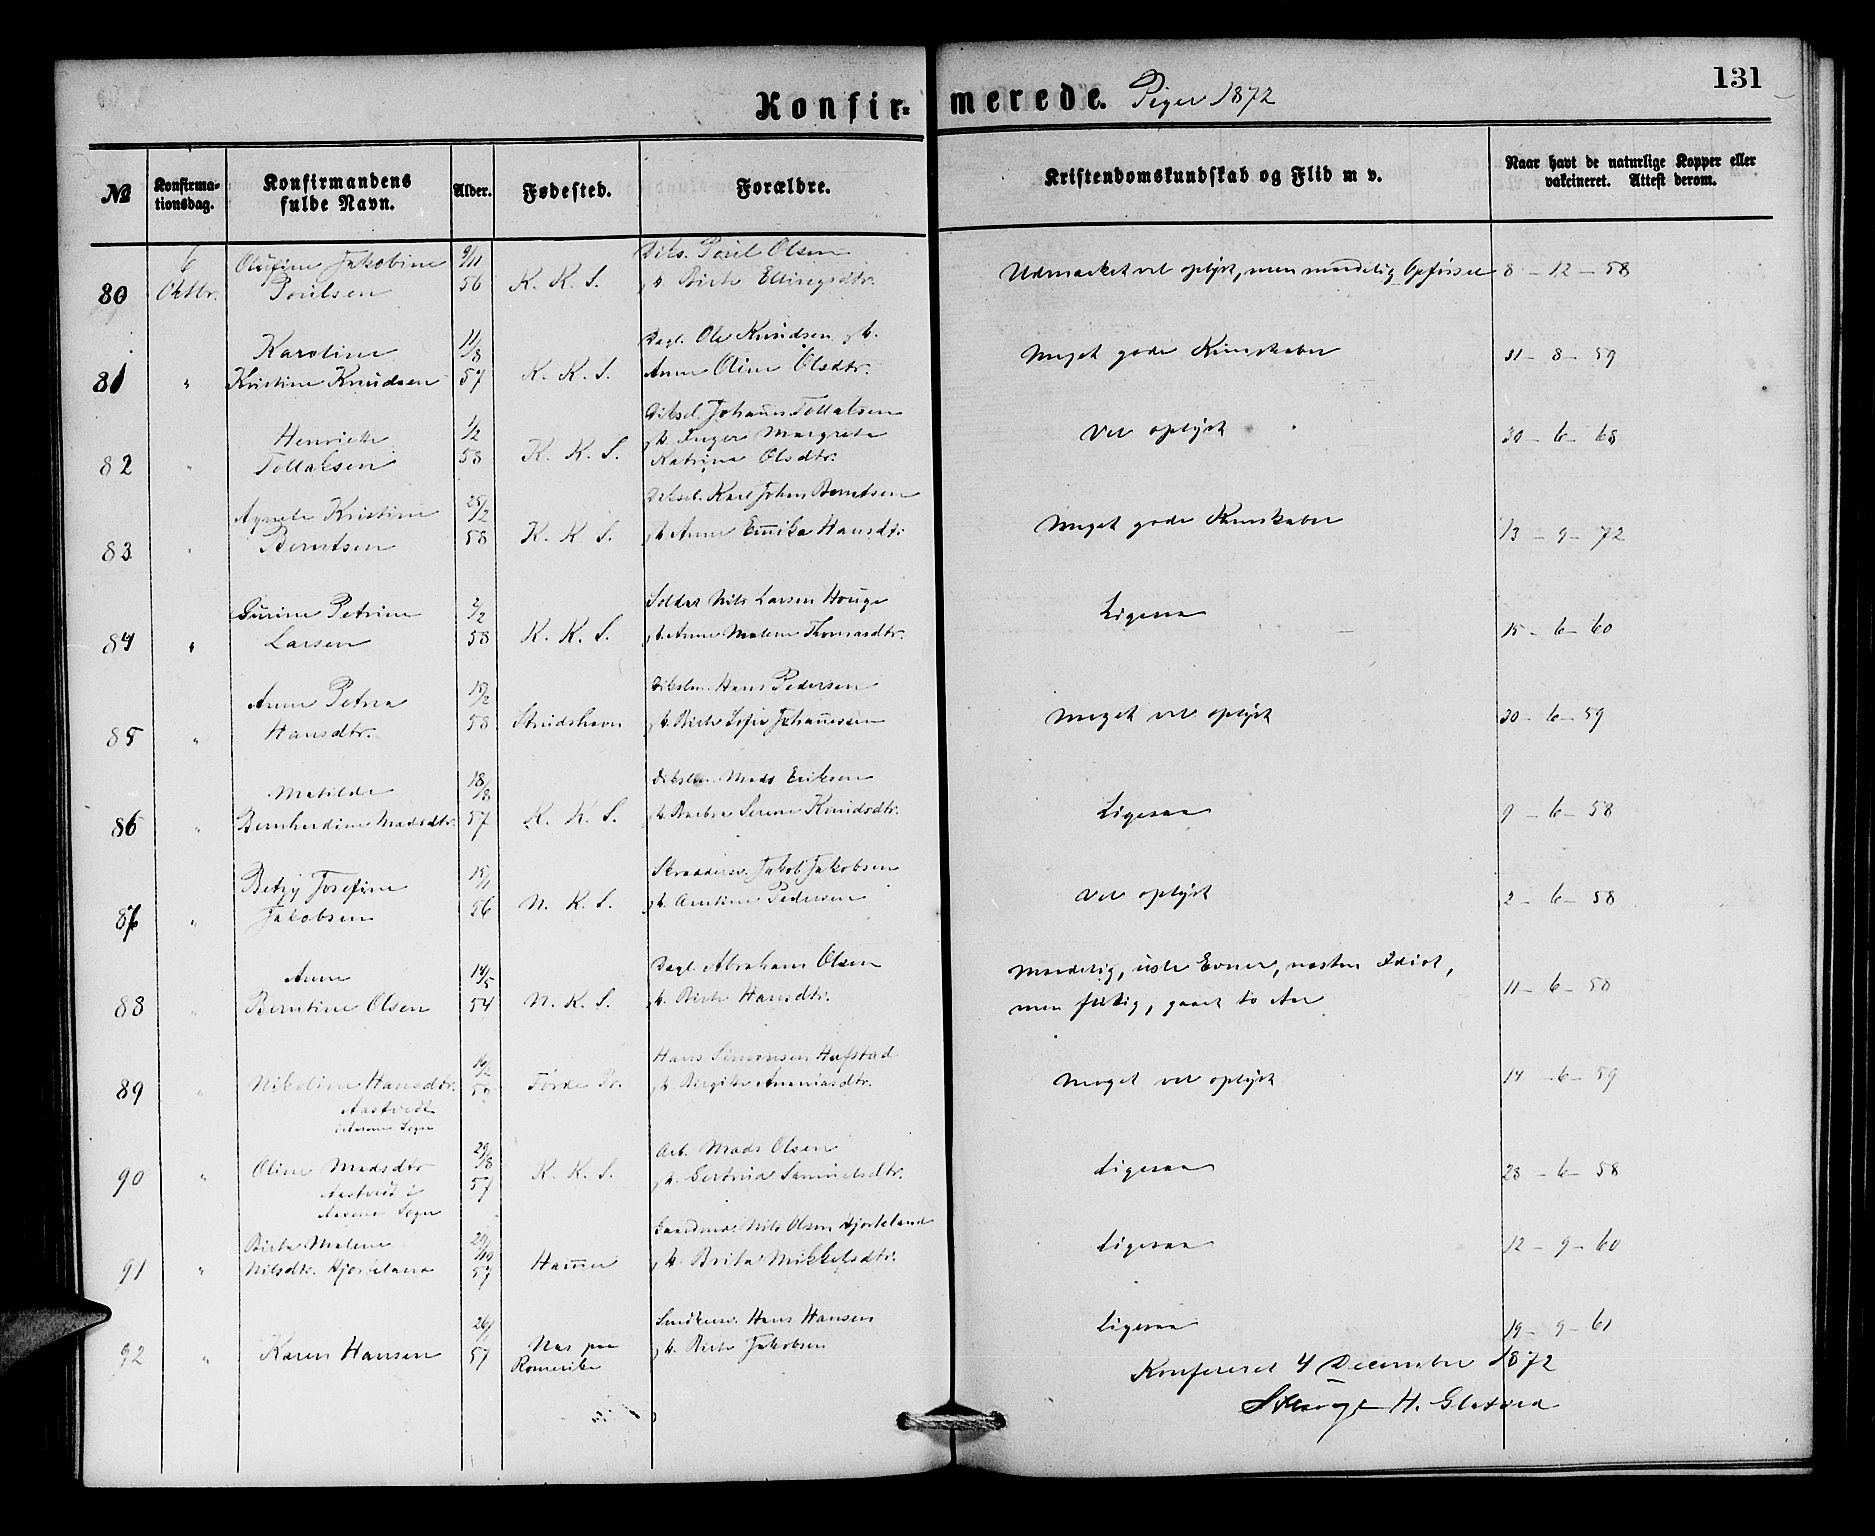 131
Konfir- merede. Piger 1872
№ Konfirma-tionsdag. Konfirmandens fulde Navn. Alder. Fødested. Forældre. Kristendomskundskab og Flid m v. Naar havt de naturlige Kopper eller vakcineret. Attest derom.
6 Olufine Jakobine 9/11 Poul Olsen
80 Oktbr. Poulsen 56 K. K. S. Birte Ellingsdtr. Udmærket vel oplyst, men maadelig Opførsel 8-12-58
Karoline 11/8 Dagl. Ole Knudsen
81 " Kristine Knudsen 57 K. K. S. Anne Oline Olsdtr. Meget gode Kundskaber 31-8-59
Johannes Tollaksen
Henriette 1/2 Inger Margrete
82 " Tollaksen 58 K. K. S. Katrine Olsdtr. Vel oplyst 30-6-68
Agnete Kristine 25/2 Karl Johan Berntsen
83 " Berntsen 58 K. K. S. Anne Emilie Hansdtr. Meget gode Kundskaber 13-9-72
Gurine Petrine 2/2 Soldat Nils Larsen Houge
84 " Larsen 58 K. K. S. Anne Malene Thomasdtr. Ligesaa 15-6-60
Anne Petrea 15/2 Hans Pedersen
85 " Hansdtr. 58 Skudeshavn Birte Sofie Johannessen Meget vel oplyst 30-6-59
Matilde 18/8 Mads Eriksen
86 " Bernhardine Madsdtr. 57 K. K. S. Barbra Serene Knudsdtr. Ligesaa 9-6-58
Betzy Josefine 15/1 Jakob Jakobsen
87 " Jakobsen 56 N. K. S. Pedersen Vel oplyst 2-6-58
Anne 14/5 Dagl. Abraham Olsen Maadelig, usle Evner, næsten Idiot,
88 " Berntine Olsen 54 N. K. S. Birte Hansdtr. men flittig, gaaet to Aar 11-6-58
Hans Simonsen Hafstad
89 " Nikoline Hansdtr. Førde Pr. Birgitte Ananiasdtr. Meget vel oplyst 14-6-59
Aastvedt
Sogn
29/8 Arb. Mads Olsen
90 " Oline Madsdtr 57 K. K. S. Gertrud Samuelsdtr. Ligesaa 28-6-58
Aastvedt i
Sogn
Birte Malene 29/10 Nils Olsen Hjorteland
91 " Nilsdtr. Hjorteland 57 Hammer Brita Mikkelsdtr. Ligesaa 12-9-60
26/1 Hans Hansen Ligesaa
92 " Karen Hansen 57 Næs paa Romerike Birte Jakobsen 19-9-61
Konfereret 4 December 1872